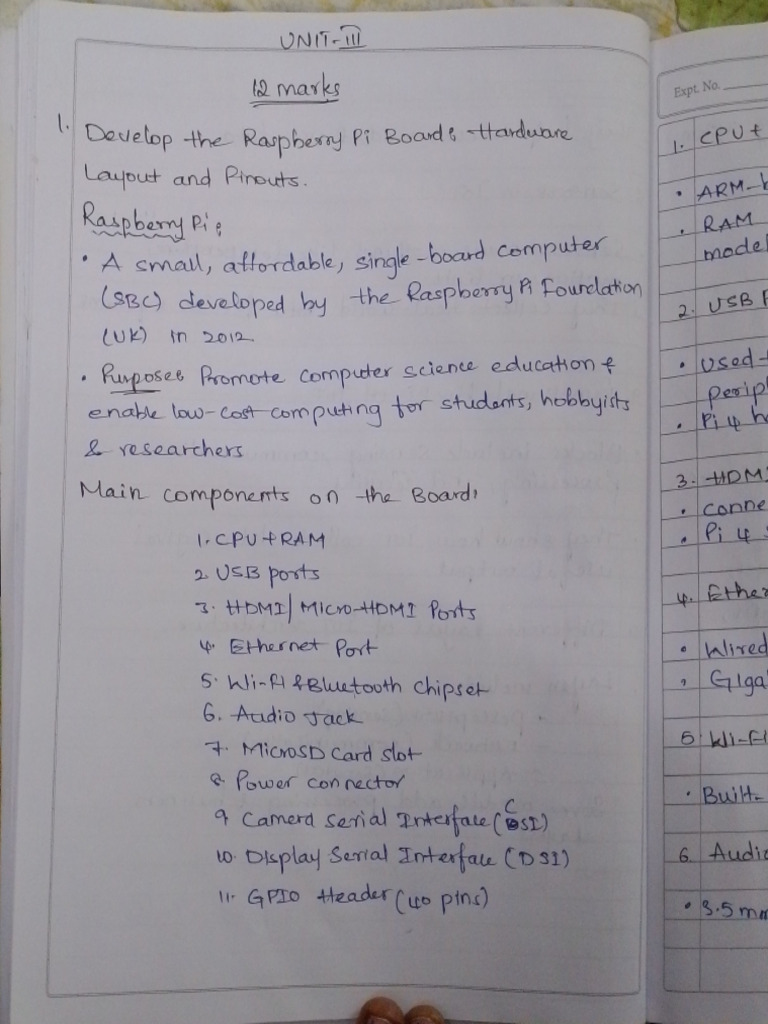 UNIT-III
12 marks
1. Develop the Raspberry Pi Board: Hardware
Layout and Pinouts.
Raspberry Pi:
• A small, affordable, single-board computer
(SBC) developed by the Raspberry Pi Foundation
(UK) in 2012.
• Purpose: Promote computer science education &
enable low-cost computing for students, hobbyists
& researchers
Main components on the Board:
1. CPU + RAM
2. USB ports
3. HDMI/MICRO-HDMI Ports
4. Ethernet Port
5. Wi-Fi & Bluetooth chipset
6. Audio Jack
7. MicroSD card slot
8. Power connector
9 Camera Serial Interface (CSI)
10. Display Serial Interface (DSI)
11. GPIO Header (40 pins)
Expt. No.
1. CPU +
• ARM-b
• RAM
model
2. USB P
• Used
perip
• Pi 4 h
3. HDMI
• conne
• Pi 4
4. Ether
• Wired
• Giga
5. Wi-Fi
• Built-
6. Audio
• 3.5 mm